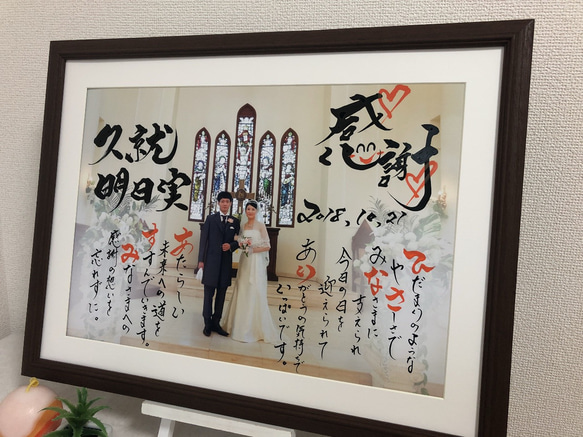 感謝
久就
明日実
2018.10.21
ひだまりのような
やさしさで
みなさまに
支えられ
今日の日を
迎えられて
ありがとうの気持ちで
いっぱいです。
あたらしい
未来への道を
すすんでいきます。
みなさまへの
感謝の想いを
忘れずに。